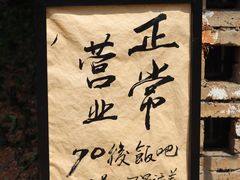 正常
营业
70後飯吧